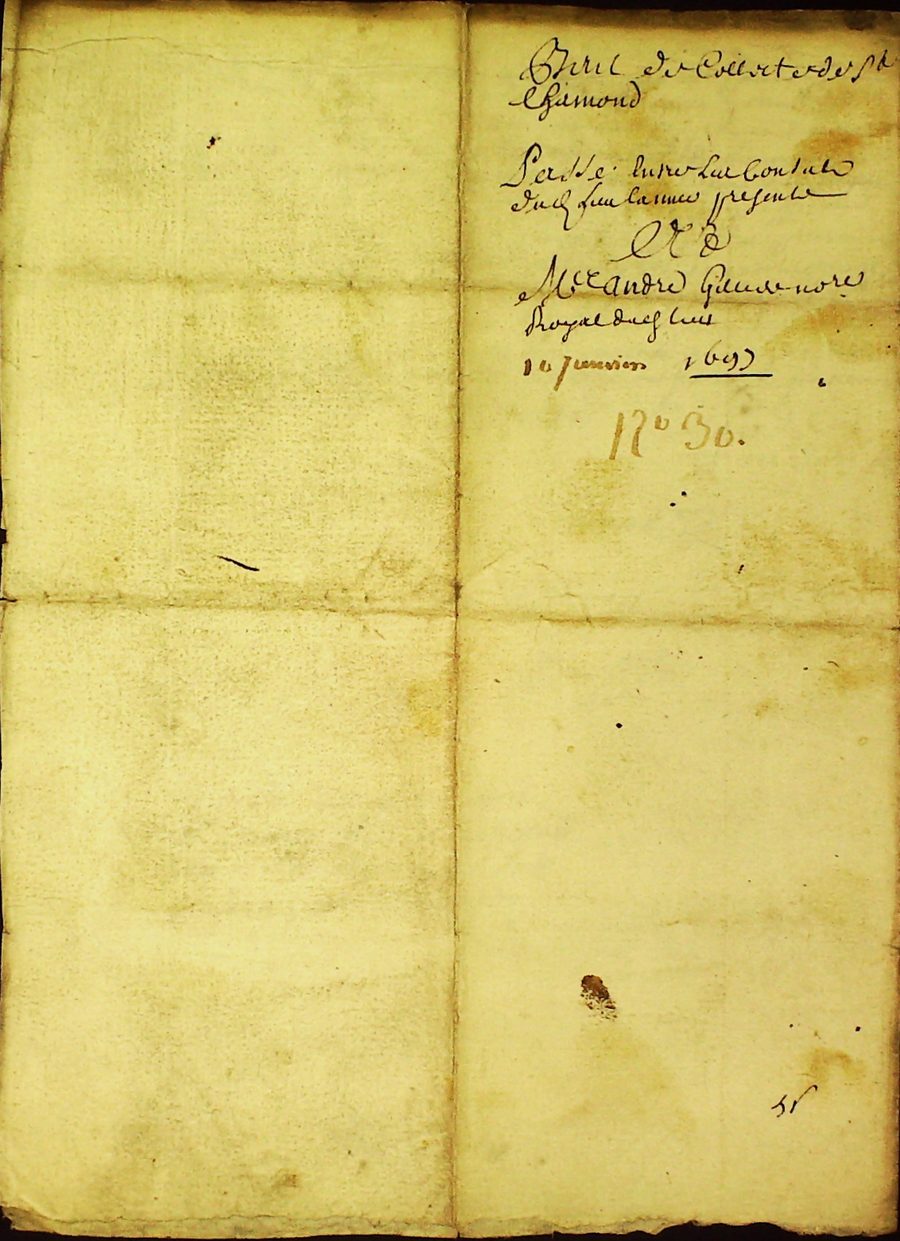 Bail de Collecte de St
Chamond
Passé Entre Les Consuls
dud lieu lannee presente
Et
Me Andre not re
Royal dud lieu
10 Janvier 1697
No 30.